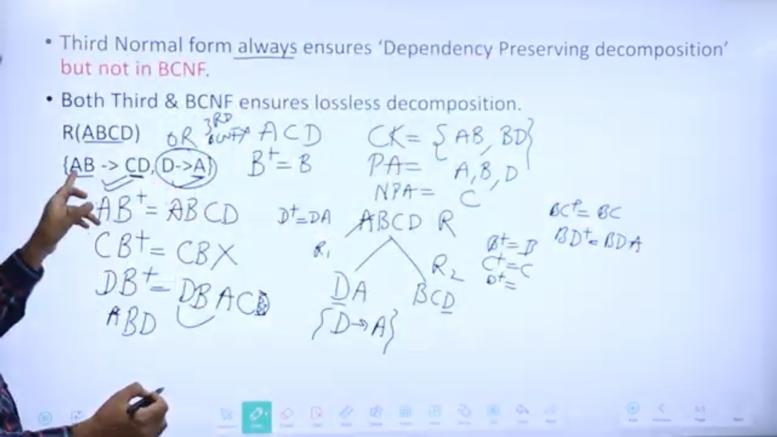 • Third Normal form always ensures 'Dependency Preserving decomposition'
but not in BCNF.
• Both Third & BCNF ensures lossless decomposition.
R(ABCD)
{AB -> CD, D->A}
OR 3RD
ACD
B+ = B
CK = {AB, BD}
PA = A, B, D
NPA = C
AB+ = ABCD
CB+ = CBX
DB+ = DBACD
ABD
D+ = DA
ABCD R
R1
R2
DA
BCD
{D→A}
B+ = B
C+ = C
D+ =
BC+ = BC
BD+ = BDA